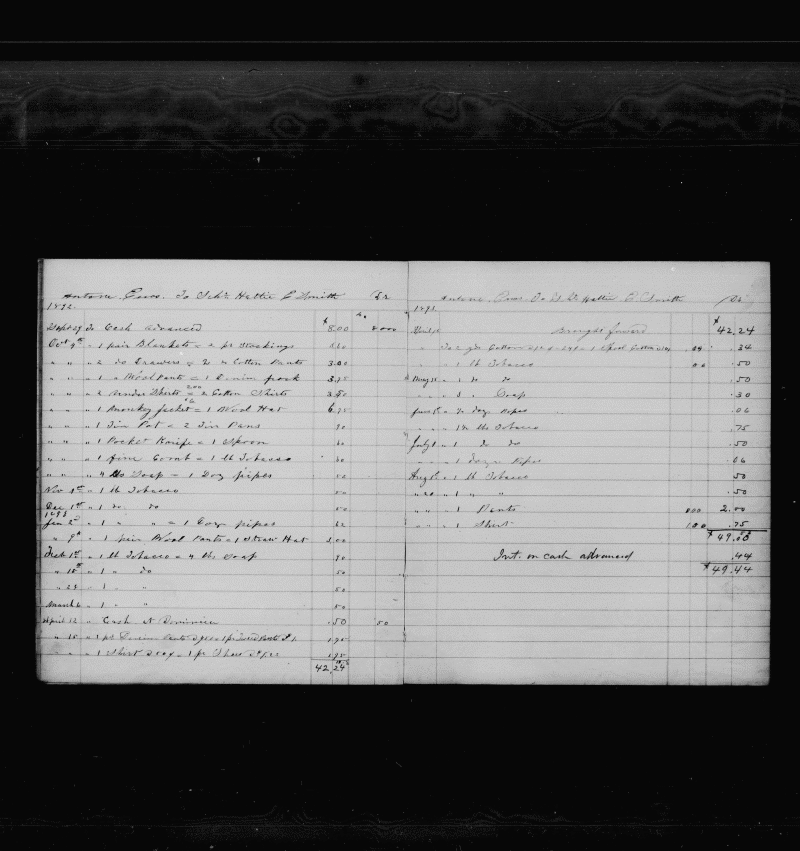 Antone To Sch. Hattie E Smith Dr
1892.
$
Sept 29 To Cash advanced 8.00 8 000
Oct 9th " 1 pair Blankets = 2 pr Stockings
" " " 2 do Drawers = 2 " Cotton Pants 3.00
" " " 1 " Wool Pants = 1 Denim frock 3.75
" " " 2 Under Shirts = 2 Cotton Shirts 3.50
" " " 1 Monkey Jacket = 1 Wool Hat 6.75
" " " 1 Tin Pot = 2 Tin Pans 90
" " " 1 Pocket Knife = 1 Spoon 60
" " " 1 fine Comb = 1 lb Tobacco 60
" " " 4 lbs Soap = 1 Doz pipes 50
Nov 1st " 1 lb Tobacco 50
Dec 1st " 1 do do 50
1893
Jan 2d " 1 " " = 1 Doz pipes 62
" 9th " 1 pair Wool Pants = 1 Straw Hat 3.00
Feb 1st " 1 lb Tobacco = 4 lbs Soap 90
" 10th " 1 " do 50
" 23 " 1 " " 50
March 6 " 1 " " 50
April 12 " Cash at Dominica .50 50
" 15 " 1 pr Denim Pants 1.75
" " " 1 Shirt = 1 pr Shoes 1.75
42,24
Antone To Sch. Hattie E. Smith Dr
1893.
$
Brought forward 42,24
" To 2 yds Cotton = 1 Spool Cotton .34
" " 1 lb Tobacco .50
May " 1 do do .50
" " Soap .30
June " Doz Pipes .06
" " lb Tobacco .75
July " 1 do do .50
" " Doz Pipes .06
Aug " 1 lb Tobacco .50
" " 1 " " .50
" " 1 Pants 2.00
" " 1 Shirt 100 .75
$ 49.00
Int. on cash advanced .44
$ 49.44